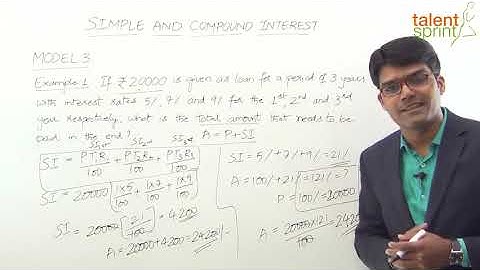 SIMPLE AND COMPOUND INTEREST
talent
sprint
MODEL 3
Example 1. If ₹20000 is given as loan for a period of 3 years
with interest rates 5%, 7% and 9% for the 1st, 2nd and 3rd
year respectively, what is the total amount that needs to be
paid in the end? A = P+SI
SI = PT1R1/100 + PT2R2/100 + PT3R3/100
SI = 20000 [1×5/100 + 1×7/100 + 1×9/100]
SI = 20000 [21/100] = 4200
A = 20000 + 4200 = 24200/-
SI = 5% + 7% + 9% = 21%
A = 100% + 21% = 121% = ?
P = 100% = 20000
A = 20000×121/100 = 24200